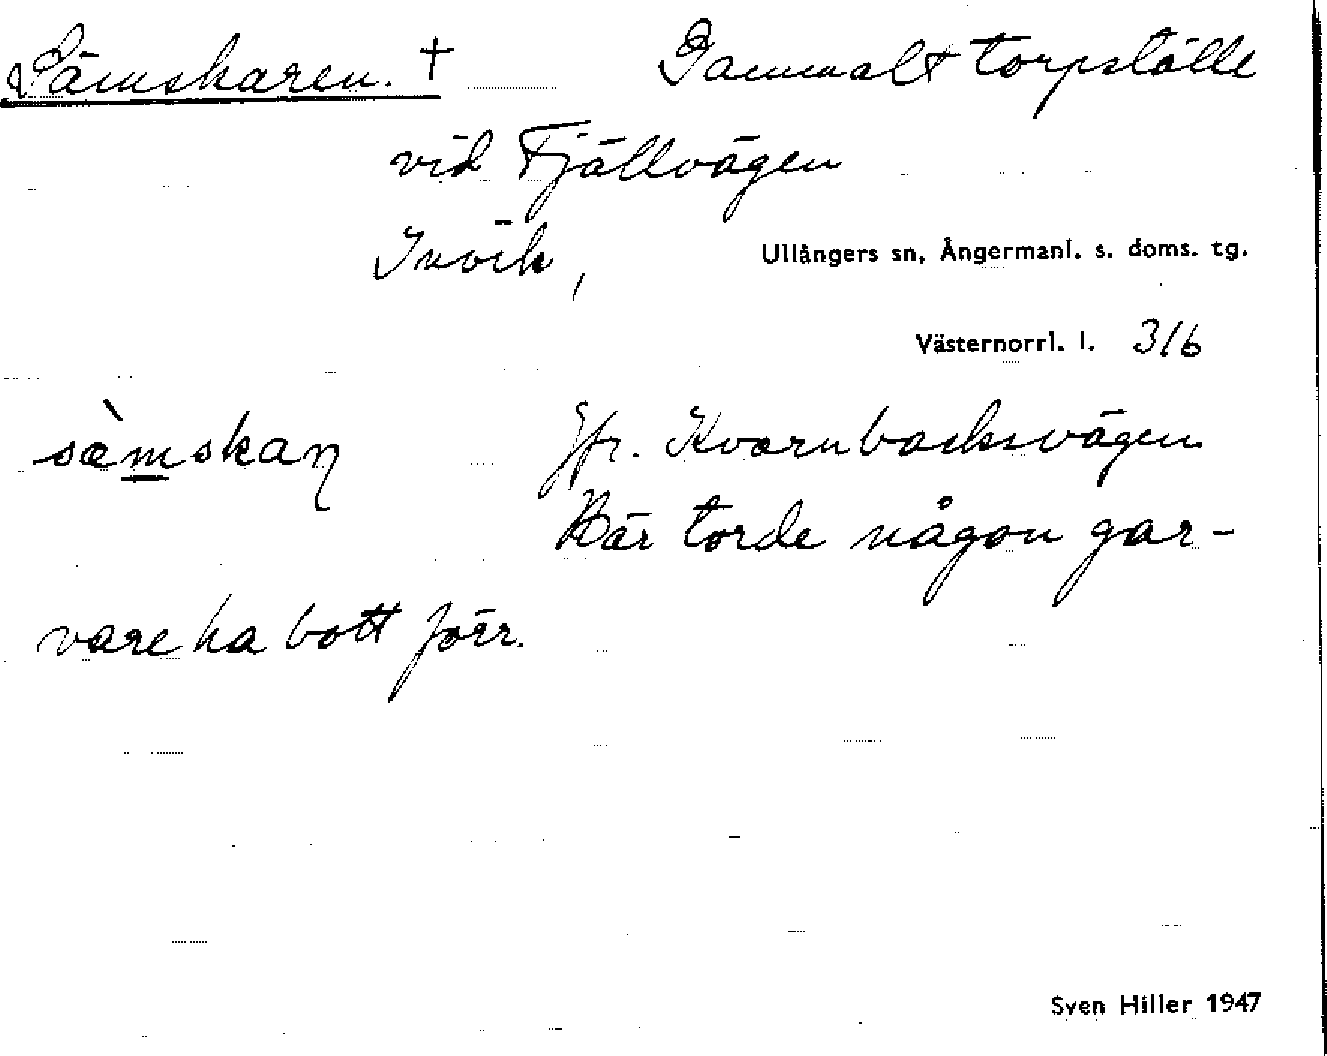 Sämskaren. † Gammalt torpställe
vid Fjällvägen
Invik, Ullångers sn, Ångermanl. s. doms. tg.
Västernorrl. l. 316
sæ̀mskaɳ Jfr. Kvarnbacksvägen
Här torde någon gar-
vare ha bott förr.
Sven Hiller 1947